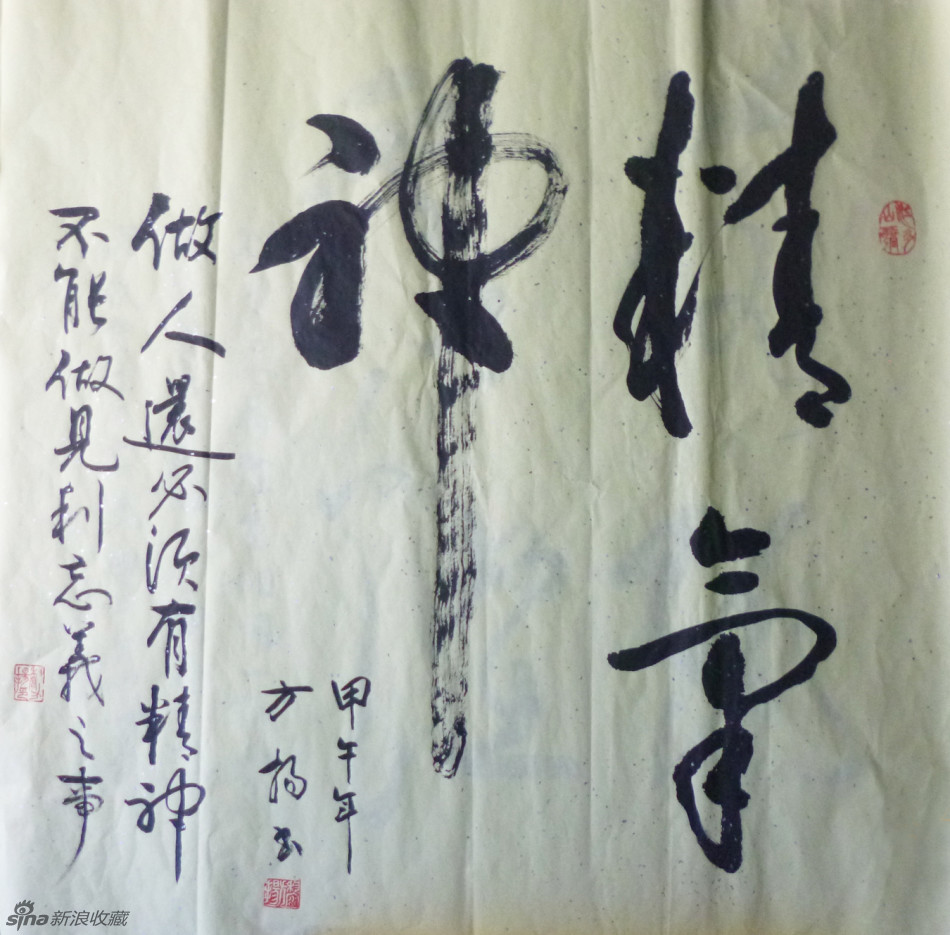 精氣
神
甲午年
方楊书
做人還必须有精神
不能做见利忘義之事
sina新浪收藏